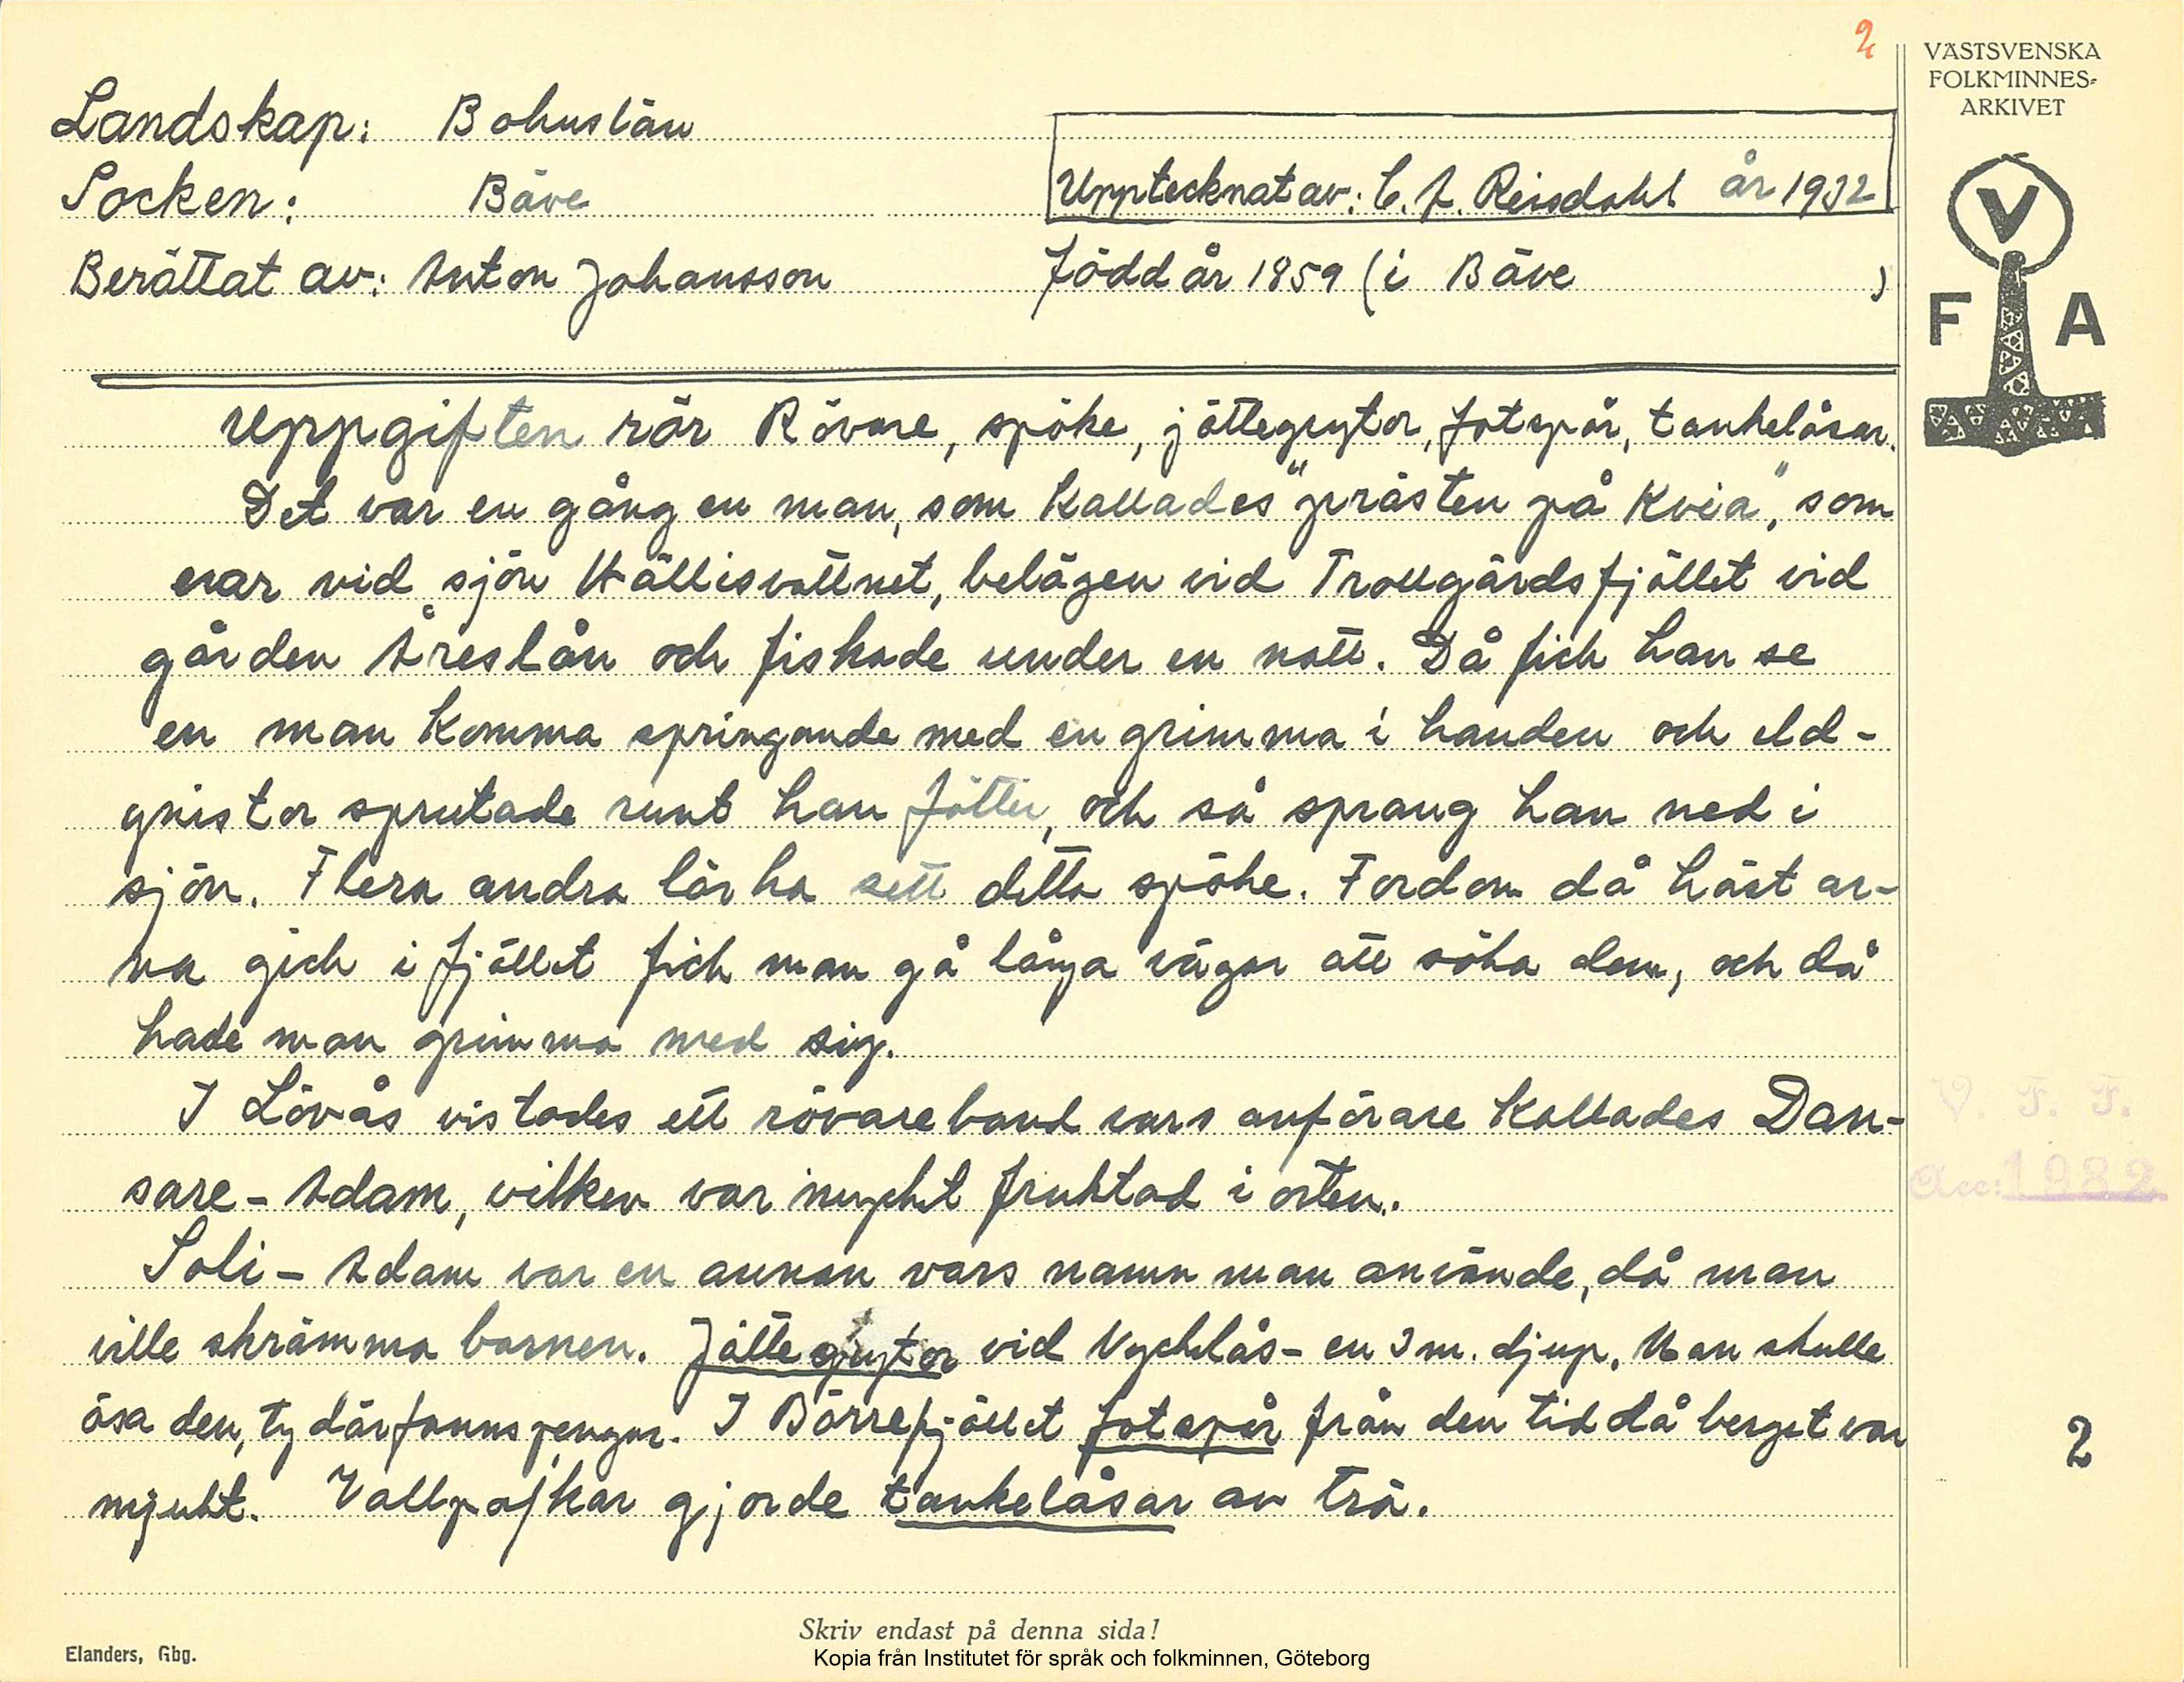 2
VÄSTSVENSKA
FOLKMINNES-
ARKIVET
V
F A
Landskap: Bohuslän
Socken: Bäve
Upptecknat av: C. A. Reisdahl år 1932
Berättat av: Anton Johansson
Född år 1859 (i Bäve )
Uppgiften rör Rövare, spöke, jättegrytor, fotspår, tankelåsar.
Det var en gång en man, som kallades "prästen på Kvia", som
var vid sjön Hällisvattnet, belägen vid Trollgärdsfjället vid
gården Åreslån och fiskade under en natt. Då fick han se
en man komma springande med en grimma i handen och eld-
gnistor sprutade runt han fötter, och så sprang han ned i
sjön. Flera andra lär ha sett detta spöke. Fordom då hästar-
na gick i fjället fick man gå långa vägar att söka dem, och då
hade man grimma med sig.
I Lövås vistades ett rövareband vars anförare kallades Dan-
sare-Adam, vilken var mycket fruktad i orten.
Soli-Adam var en annan vars namn man använde, då man
ville skrämma barnen. Jättegrytor vid Nyckelås - en 3 m. djup. Man skulle
ösa den, ty där fanns pengar. I Börrefjället fotspår från den tid då berget var
mjukt. Vallpojkar gjorde tankelåsar av trä.
V. F. F.
Acc: 1932
2
Skriv endast på denna sida!
Elanders, Gbg.
Kopia från Institutet för språk och folkminnen, Göteborg